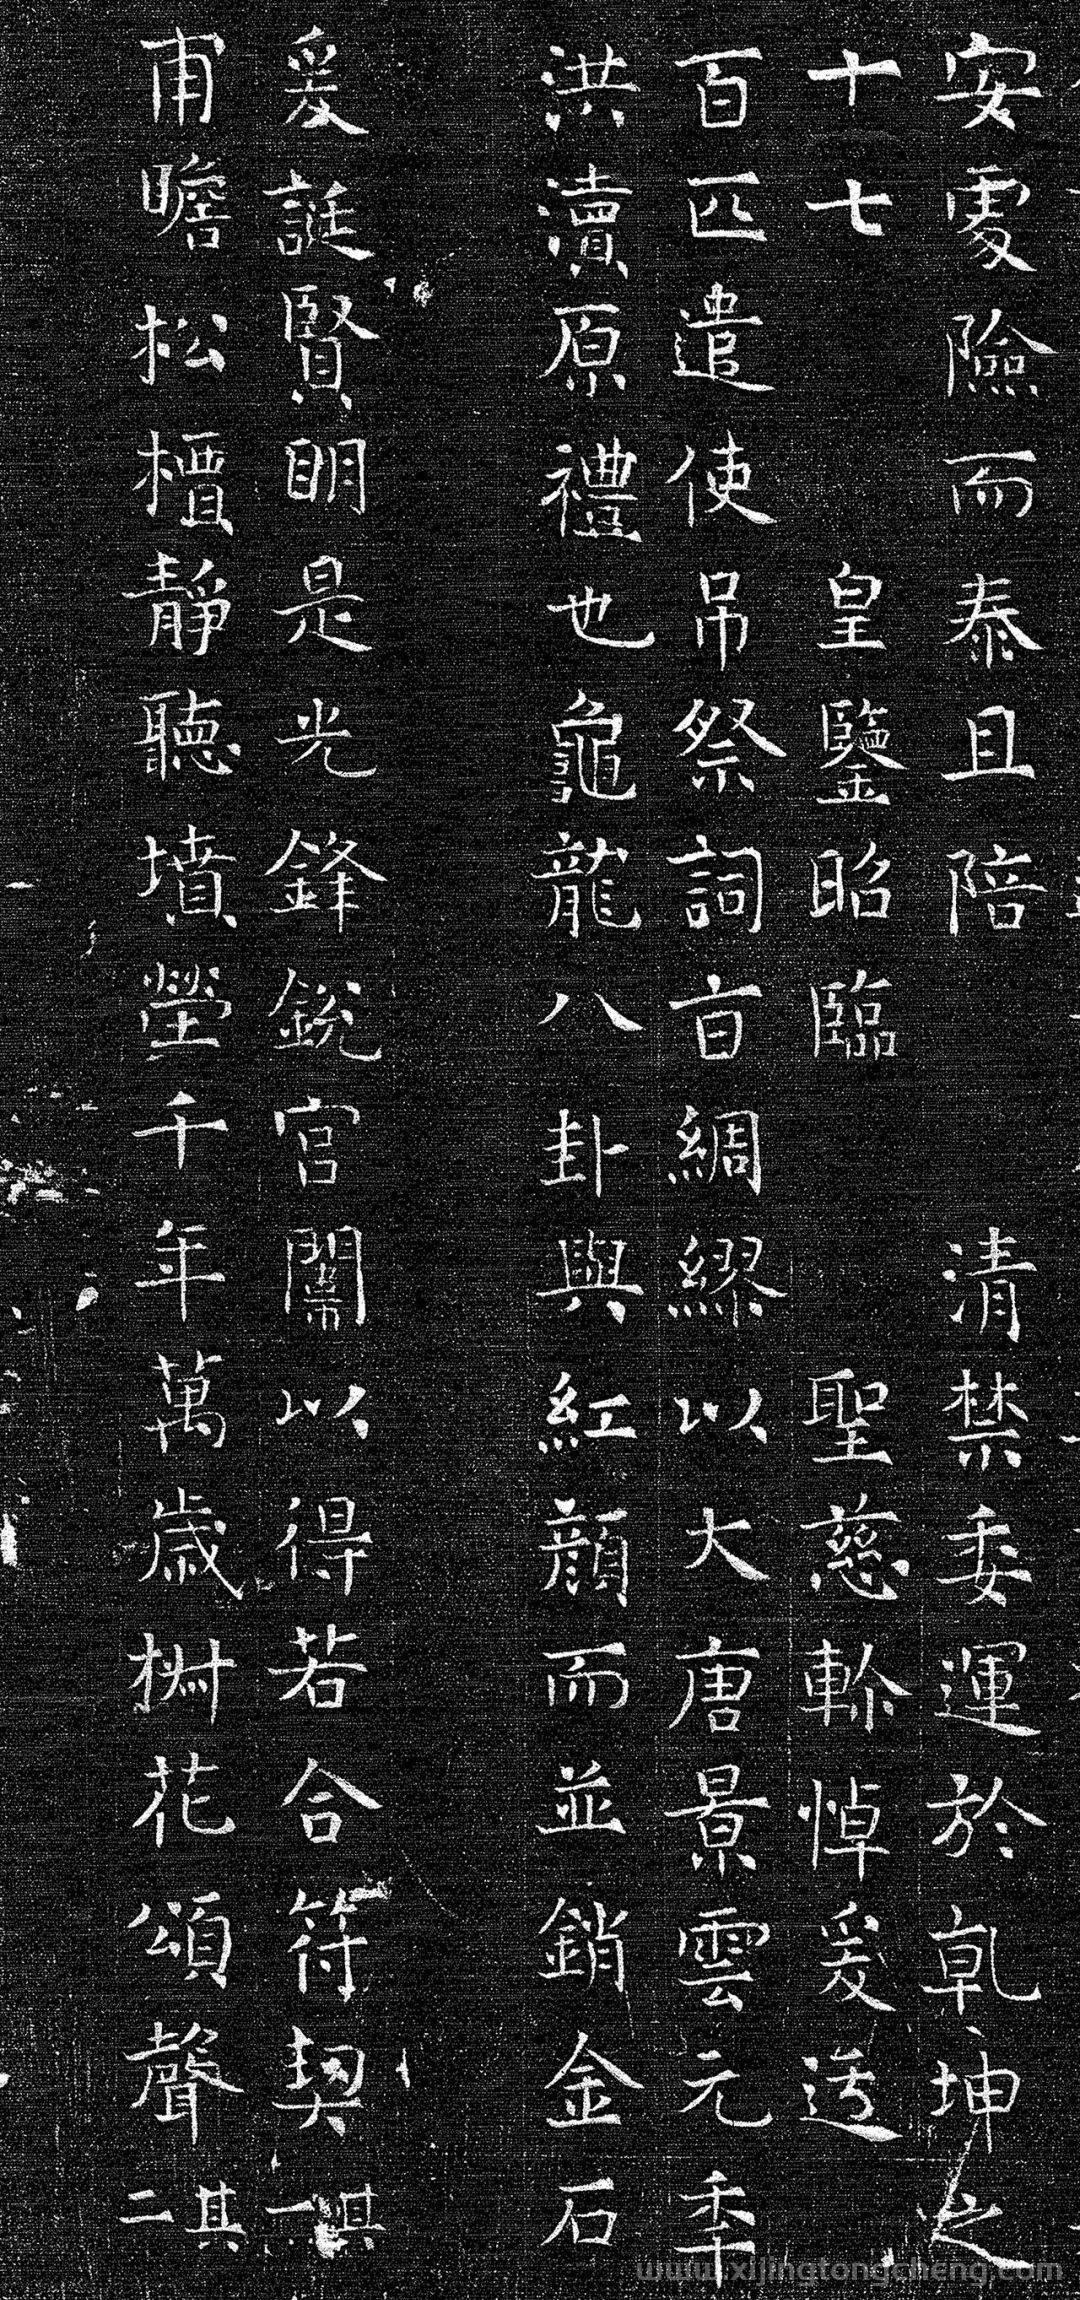 安處險而泰且陪清禁委運於乹坤之
十七皇鑒昭臨聖慈軫悼爰送
百匹遣使吊祭詞㫖綢繆以大唐景雲元秊
洪瀆原禮也龜龍八卦與紅顔而並銷金石
爰誕賢明是光鋒銳官闈以得若合符契其一
甫瞻松檟静聽墳塋千年萬歲椒花頌聲其二
www.xijingtongcheng.com